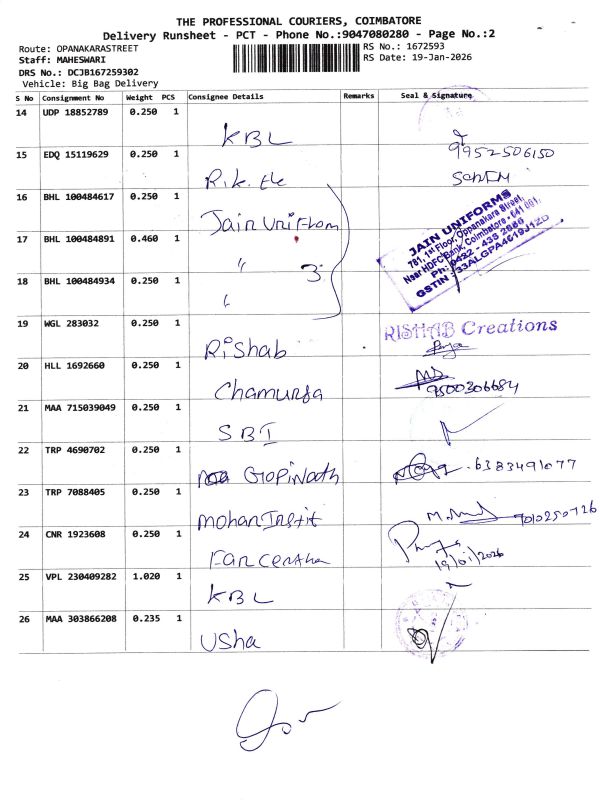 THE PROFESSIONAL COURIERS, COIMBATORE
Delivery Runsheet - PCT - Phone No.:9047080280 - Page No.:2
Route: OPANAKARASTREET
RS No.: 1672593
Staff: MAHESWARI
RS Date: 19-Jan-2026
DRS No.: DCJB167259302
Vehicle: Big Bag Delivery
S No Consignment No Weight PCS Consignee Details Remarks Seal & Signature
14 UDP 18852789 0.250 1
KBL
15 EDQ 15119629 0.250 1
9952506150
R.K.
16 BHL 100484617 0.250 1
Jain Uniform
JAIN UNIFORMS
781, 1st Floor, Oppanakara Street,
Near HDFC Bank, Coimbatore - 641 001.
Ph: 0422 - 435 2866
GSTIN : 33ALGPA4619J1ZD
17 BHL 100484891 0.460 1
" 3
18 BHL 100484934 0.250 1
"
19 WGL 283032 0.250 1
RISHAB Creations
Rishab
20 HLL 1692660 0.250 1
9500306684
21 MAA 715039049 0.250 1
SBI
22 TRP 4690702 0.250 1
Gopinath 6383491077
23 TRP 7088405 0.250 1
Mohan
24 CNR 1923608 0.250 1
19/01/2026
25 VPL 230409282 1.020 1
KBL
26 MAA 303866208 0.235 1
Usha